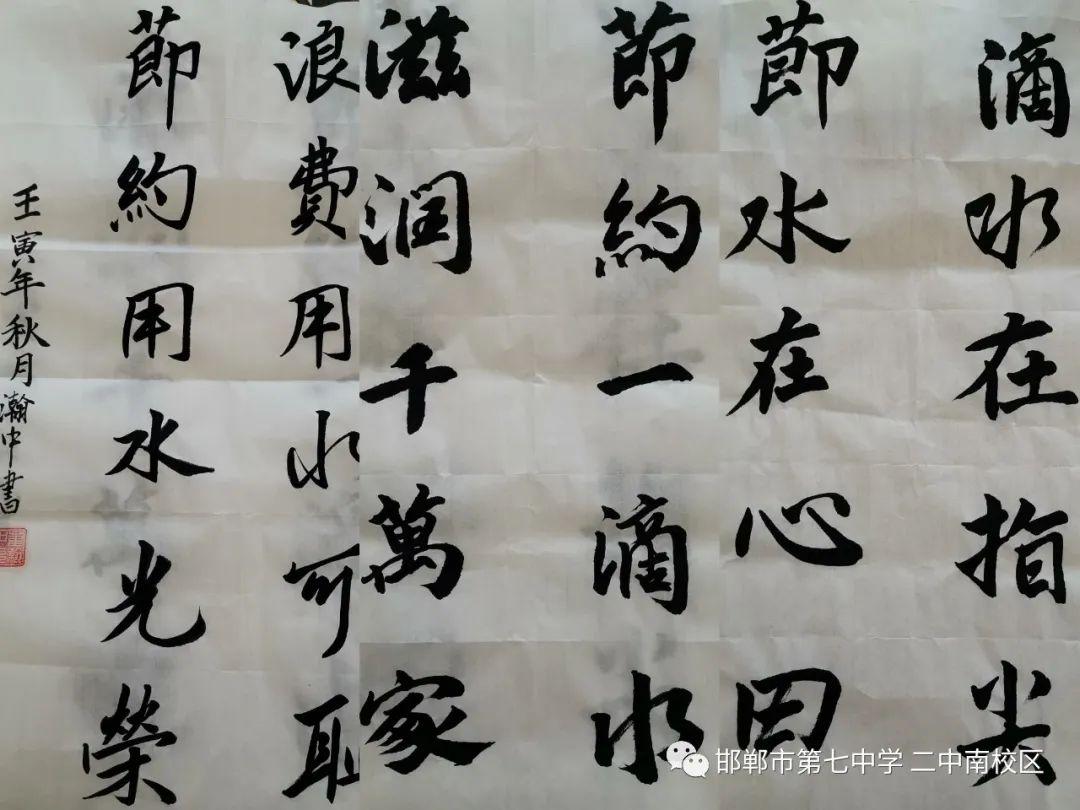 滴水在指尖
節水在心田
節約一滴水
滋润千萬家
浪費用水可耻
節約用水光榮
壬寅年秋月瀚中書
邯郸市第七中学 二中南校区